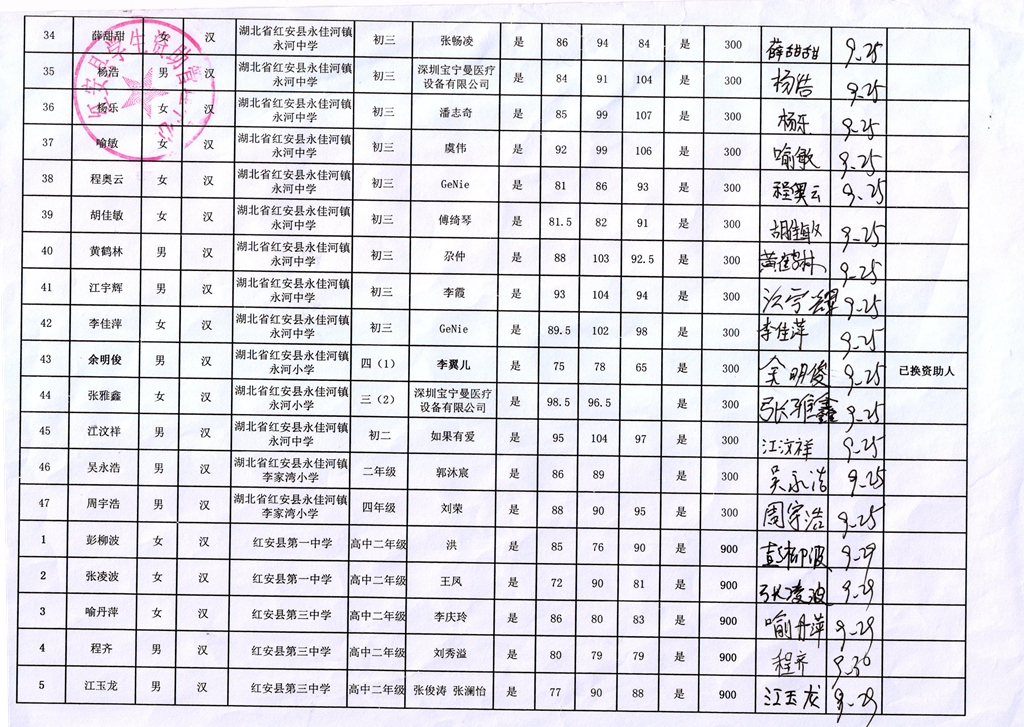 34 薛甜甜 女 汉 湖北省红安县永佳河镇永河中学 初三 张畅凌 是 86 94 84 是 300 薛甜甜 9.25
35 杨浩 男 汉 湖北省红安县永佳河镇永河中学 初三 深圳宝宁曼医疗设备有限公司 是 84 91 104 是 300 杨浩 9.25
36 杨乐 女 汉 湖北省红安县永佳河镇永河中学 初三 潘志奇 是 85 99 107 是 300 杨乐 9.25
37 喻敏 女 汉 湖北省红安县永佳河镇永河中学 初三 虞伟 是 92 99 106 是 300 喻敏 9.25
38 程奥云 女 汉 湖北省红安县永佳河镇永河中学 初三 GeNie 是 81 86 93 是 300 程奥云 9.25
39 胡佳敏 女 汉 湖北省红安县永佳河镇永河中学 初三 傅绮琴 是 81.5 82 91 是 300 胡佳敏 9.25
40 黄鹤林 男 汉 湖北省红安县永佳河镇永河中学 初三 尕仲 是 88 103 92.5 是 300 黄鹤林 9.25
41 江宇辉 男 汉 湖北省红安县永佳河镇永河中学 初三 李霞 是 93 104 94 是 300 江宇辉 9.25
42 李佳萍 女 汉 湖北省红安县永佳河镇永河中学 初三 GeNie 是 89.5 102 98 是 300 李佳萍 9.25
43 余明俊 男 汉 湖北省红安县永佳河镇永河小学 四（1） 李翼儿 是 75 78 65 是 300 余明俊 9.25 已换资助人
44 张雅鑫 女 汉 湖北省红安县永佳河镇永河小学 三（2） 深圳宝宁曼医疗设备有限公司 是 98.5 96.5 是 300 张雅鑫 9.25
45 江汶祥 男 汉 湖北省红安县永佳河镇永河中学 初二 如果有爱 是 95 104 97 是 300 江汶祥 9.25
46 吴永浩 男 汉 湖北省红安县永佳河镇李家湾小学 二年级 郭沐宸 是 86 89 是 300 吴永浩 9.25
47 周宇浩 男 汉 湖北省红安县永佳河镇李家湾小学 四年级 刘荣 是 88 90 95 是 300 周宇浩 9.25
1 彭柳波 女 汉 红安县第一中学 高中二年级 洪 是 85 76 90 是 900 彭柳波 9.29
2 张凌波 女 汉 红安县第一中学 高中二年级 王凤 是 72 90 81 是 900 张凌波 9.29
3 喻丹萍 女 汉 红安县第三中学 高中二年级 李庆玲 是 86 80 83 是 900 喻丹萍 9.29
4 程齐 男 汉 红安县第三中学 高中二年级 刘秀溢 是 80 79 79 是 900 程齐 9.30
5 江玉龙 男 汉 红安县第三中学 高中二年级 张俊涛 张澜怡 是 77 90 88 是 900 江玉龙 9.29
红安县学生资助管理中心